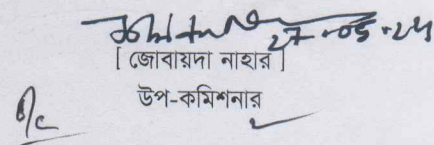 27-05-24
[ জোবায়দা নাহার ]
উপ-কমিশনার